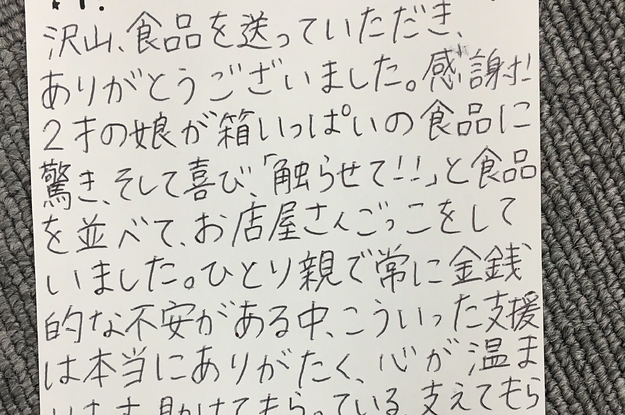 沢山、食品を送っていただき、
ありがとうございました。感謝!!
2才の娘が箱いっぱいの食品に
驚き、そして喜び、「触らせて!!」と食品
を並べて、お店屋さんごっこをして
いました。ひとり親で常に金銭
的な不安がある中、こういった支援
は本当にありがたく、心が温ま
います。助けてもらっている、支えてもら